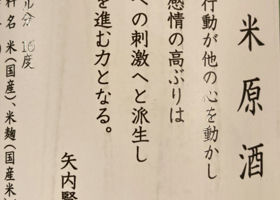 米原酒
行動が他の心を動かし
感情の高ぶりは
への刺激へと派生し
を進む力となる。
矢内賢
ル分 16度
料名 米(国産)、米麹(国産米)